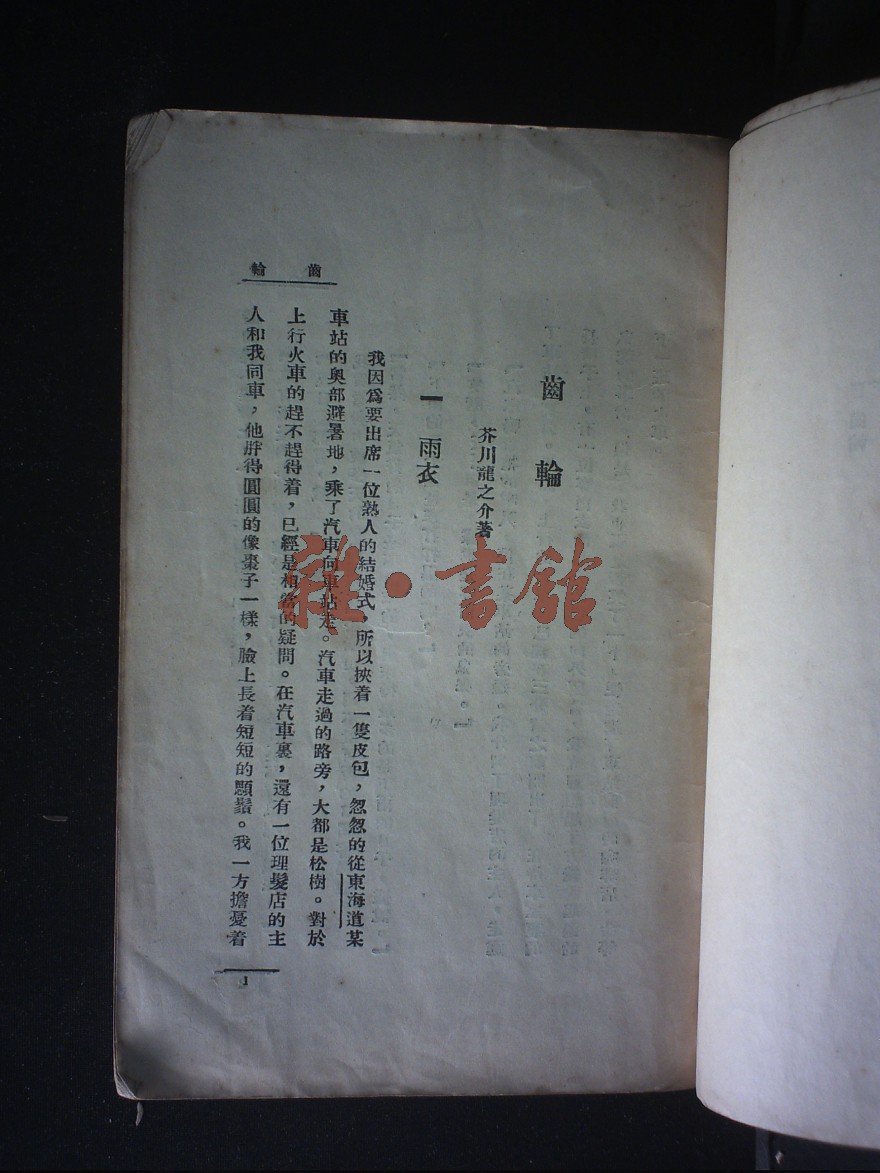 齒輪
芥川龍之介著
一　雨衣
我因爲要出席一位熟人的結婚式，所以挾着一隻皮包，忽忽的從東海道某
車站的奧部避暑地，乘了汽車向車站走。汽車走過的路旁，大都是松樹。對於
上行火車的趕不趕得着，已經是相當的疑問。在汽車裏，還有一位理髮店的主
人和我同車，他胖得圓圓的像棗子一樣，臉上長着短短的顋鬚。我一方擔憂着
齒輪
1
雜·書館